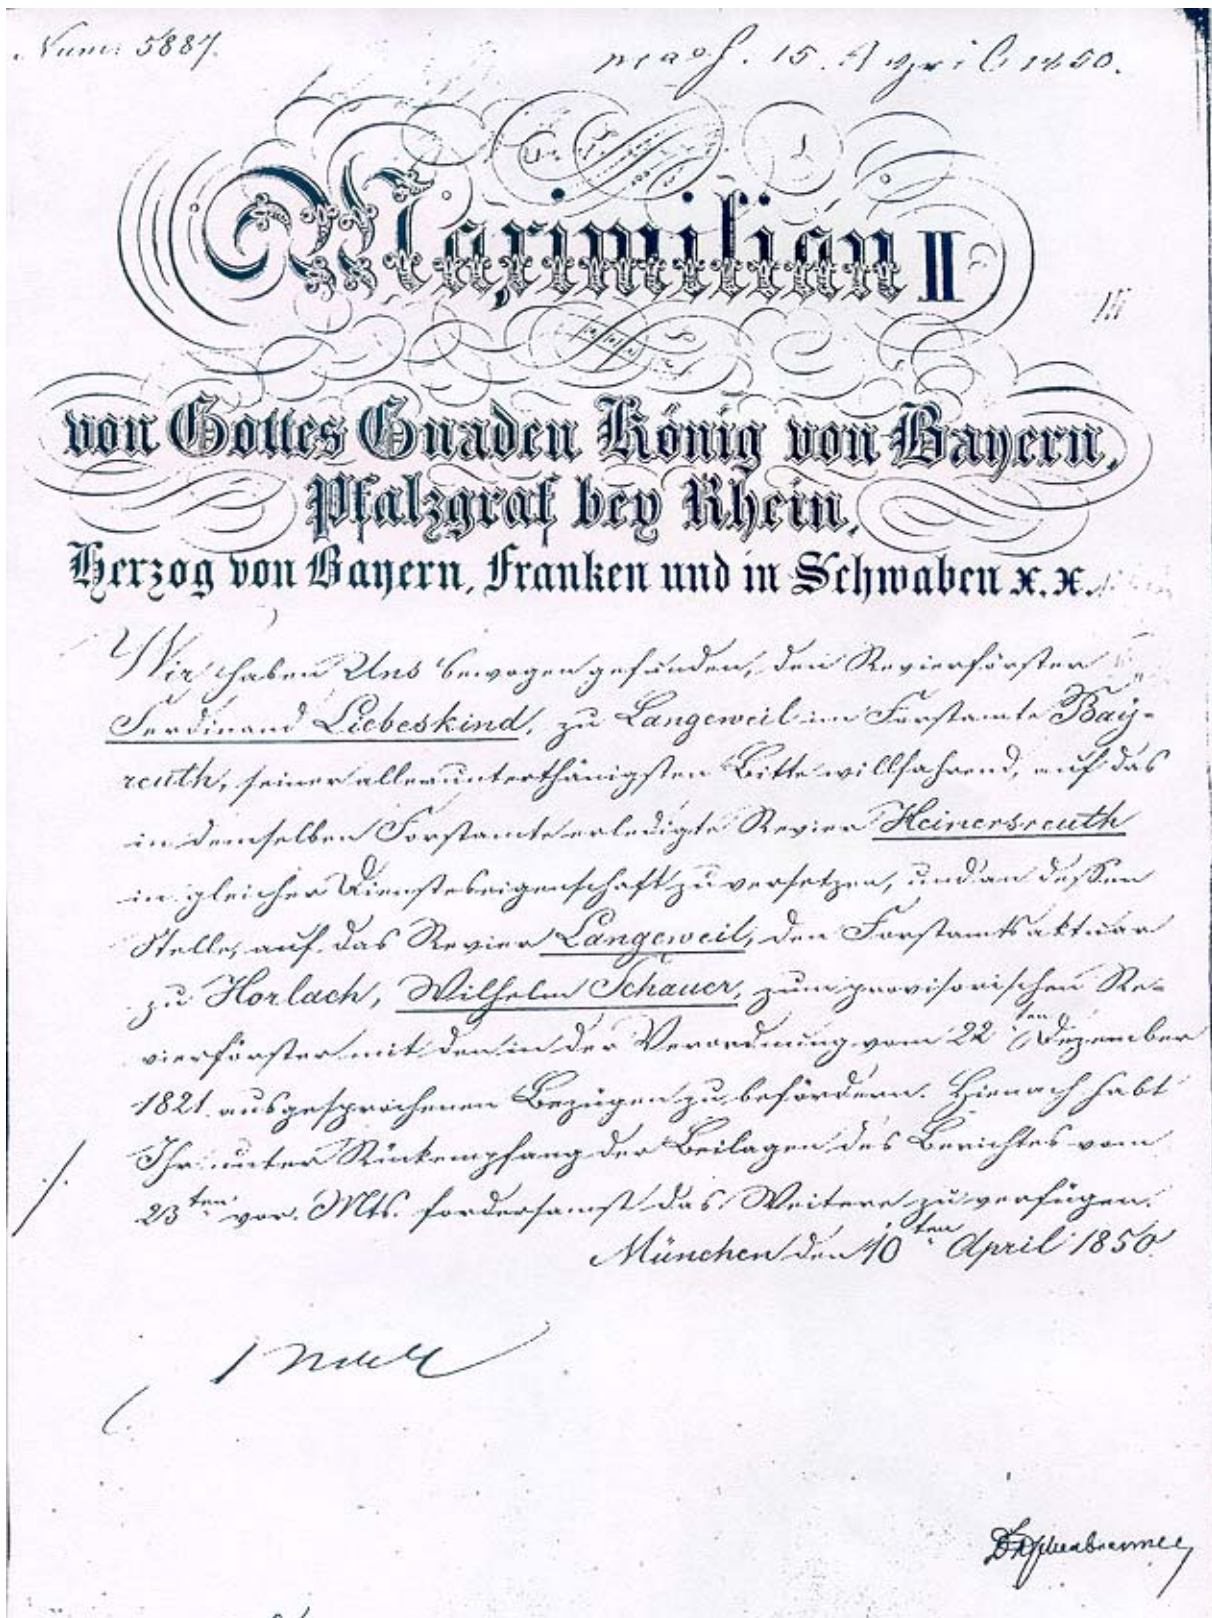 Num: 5887.
15. April 1850.
Maximilian II
von Gottes Gnaden König von Bayern,
Pfalzgraf bey Rhein,
Herzog von Bayern, Franken und in Schwaben x. x.
Wir haben Uns bewogen gefunden, den Revierförster
Ferdinand Liebeskind, zu Langeweil im Forstamte Bay-
reuth, seiner allerunterthänigsten Bitte willfahrend, auf das
in demselben Forstamte erledigte Revier Heinersreuth
in gleicher Diensteseigenschaft zu versetzen, und an dessen
Stelle, auf das Revier Langeweil, den Forstamtsaktuar
zu Horlach, Wilhelm Schauer, zum provisorischen Re-
vierförster mit den in der Verordnung vom 22ten Dezember
1821 ausgesprochenen Bezügen zu befördern. Hienach habt
Ihr unter Rückempfang der Beilagen des Berichtes vom
23ten vor. Mts. fordersamst das Weitere zu verfügen.
München den 10ten April 1850.
Max